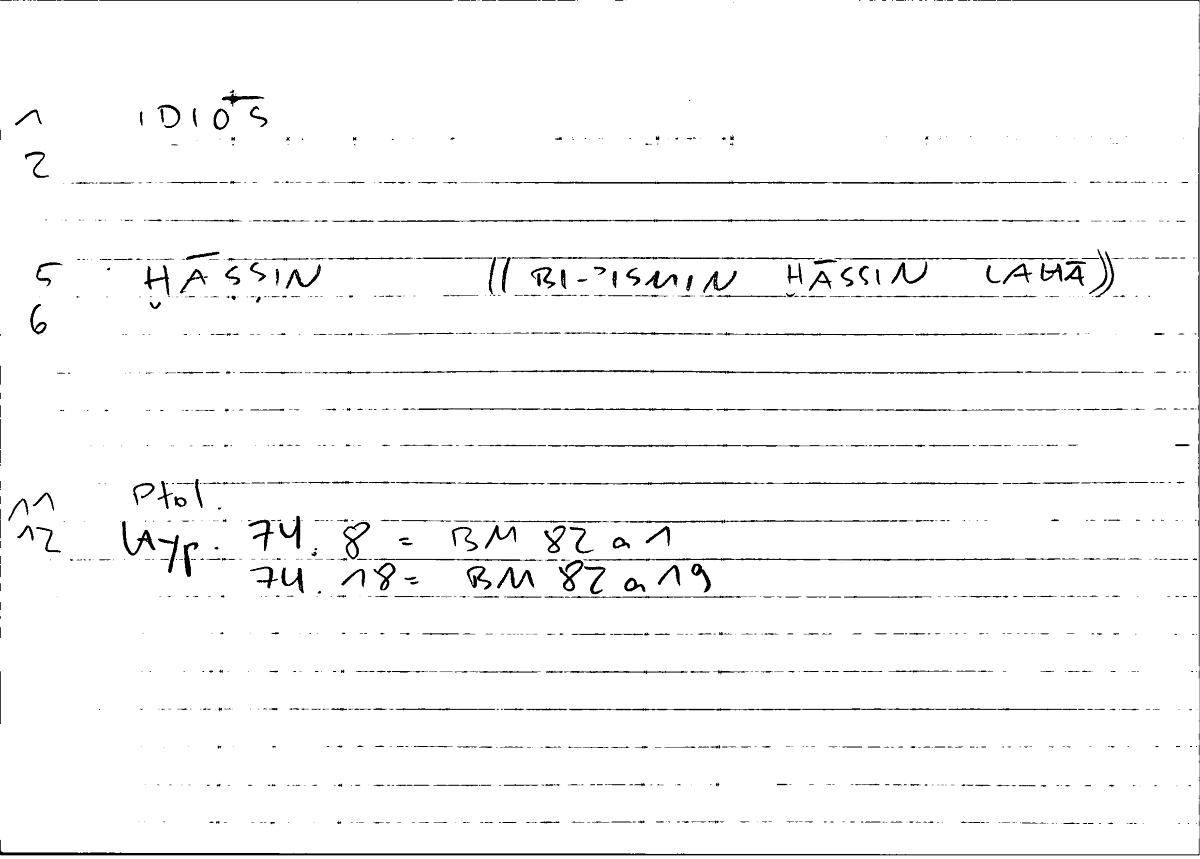 1 IDIŌS
2
5 ḪĀṢṢIN (( BI-ʾISMIN ḪĀṢṢIN LAHĀ ))
6
11 Ptol.
12 Hyp. 74.8 = BM 82 a 1
74.18 = BM 82 a 19